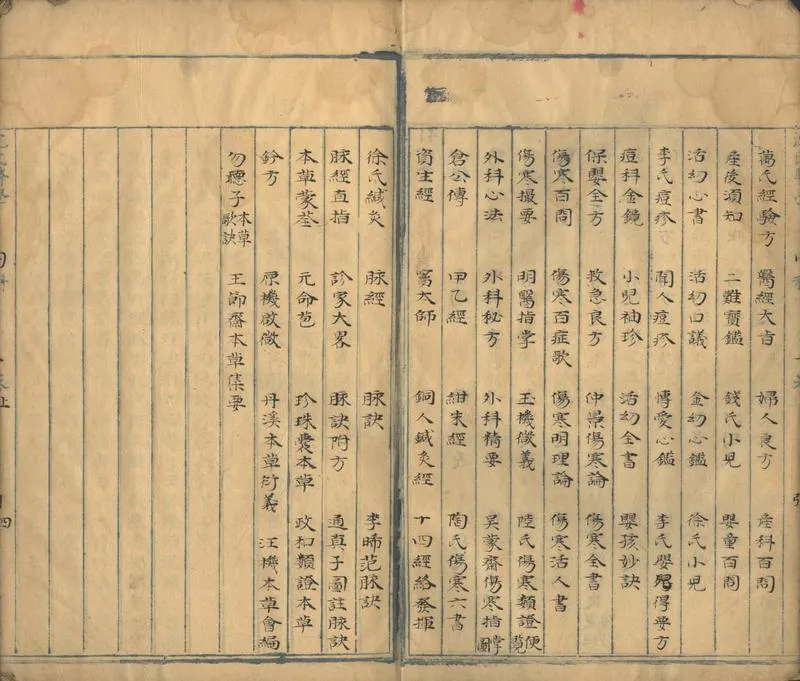 萬氏經驗方 醫經大旨 婦人良方 產科百問
產後須知 二難寶鑑 錢氏小兒 嬰童百問
活幼心書 活幼口議 全幼心鑑 徐氏小兒
李氏痘疹 聞人痘疹 博愛心鑑 李氏嬰兒得要方
痘科金鏡 小兒袖珍 活幼全書 嬰孩妙訣
保嬰全方 救急良方 仲景傷寒論 傷寒全書
傷寒百問 傷寒百症歌 傷寒明理論 傷寒活人書
傷寒撮要 明醫指掌 玉機微義 陸氏傷寒類證便覽
外科心法 外科秘方 外科精要 吳蒙齋傷寒指掌圖
倉公傳 甲乙經 紺朱經 陶氏傷寒六書
資生經 竇太師 銅人鍼灸經 十四經絡發揮
徐氏鍼灸 脉經 脉訣 李晞范脉訣
脉經直指 診家大畧 脉訣附方 通真子圖註脉訣
本草蒙荃 元命苞 珍珠囊本草 政和類證本草
鈐方 原機啟微 丹溪本草衍義 汪機本草會編
勿聽子本草歌訣 王節齋本草集要